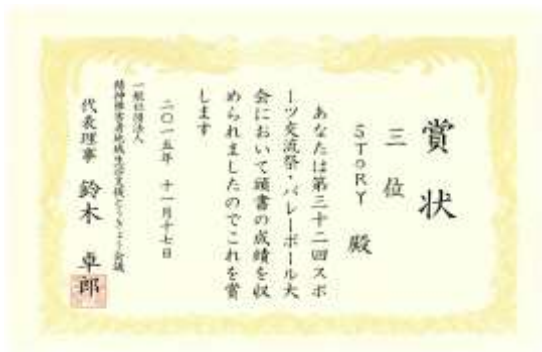 賞状
三位
STORY 殿
あなたは第三十二回スポ
ーツ交流祭・バレーボール大
会において頭書の成績を収
められましたのでこれを賞
します
二〇一五年 十一月十七日
一般社団法人
精神障害者地域生活支援とうきょう会議
代表理事 鈴木 卓郎